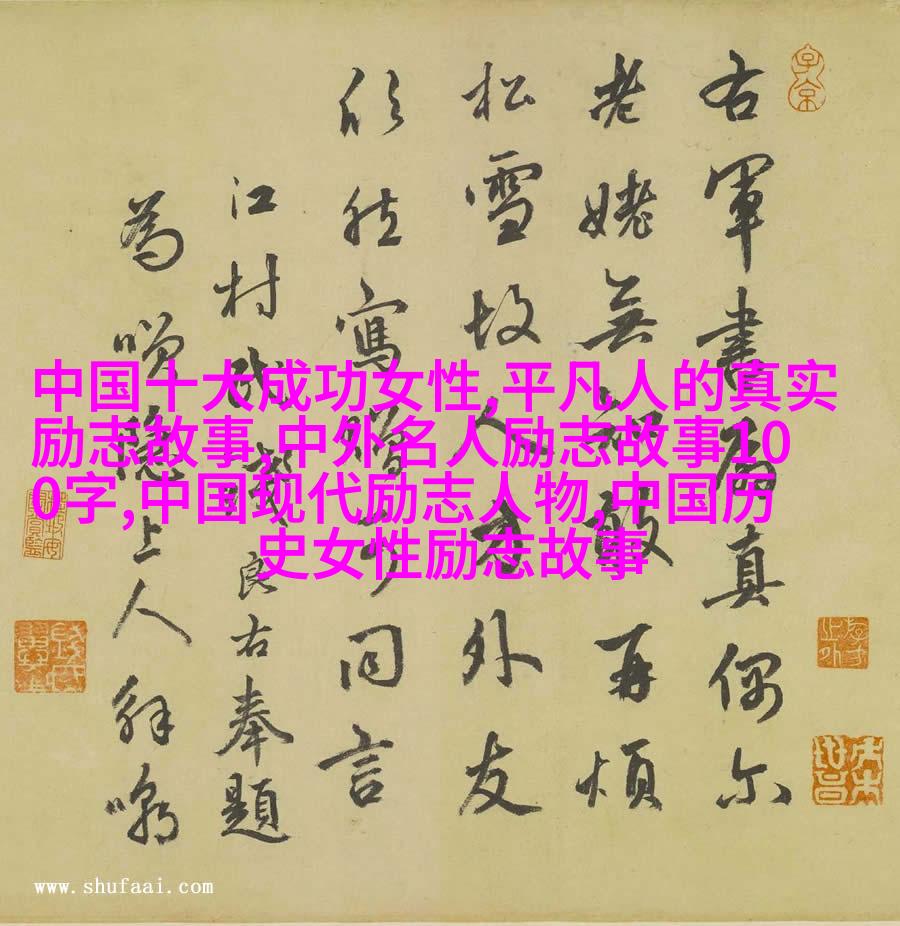 右軍書扇真偶尔
老姥無知敢再煩
松雪故人方外友
欣然寫贈妙同言
江村民錢良右奉題
為隱上人
中国十大成功女性,平凡人的真实
励志故事,中外名人励志故事10
0字,中国现代励志人物,中国历
史女性励志故事
www.shufaai.com